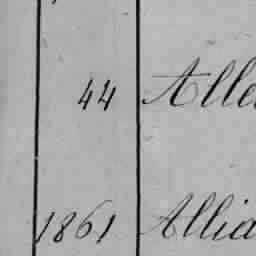 44 Alle
1861 Allia